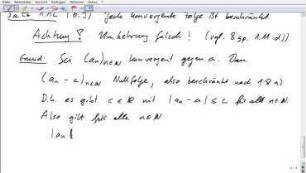 Satz 1.12 (B.S) Jede konvergente Folge ist beschränkt
Achtung! Umkehrung falsch! (vgl. Bsp. 1.11 d))
Grund: Sei (an)n∈ℕ konvergent gegen a. Dann
(an - a)n∈ℕ Nullfolge, also beschränkt nach 1.8 a)
D.h. es gibt c ∈ ℝ mit |an - a| ≤ c für alle n∈ℕ.
Also gilt für alle n∈ℕ
|an